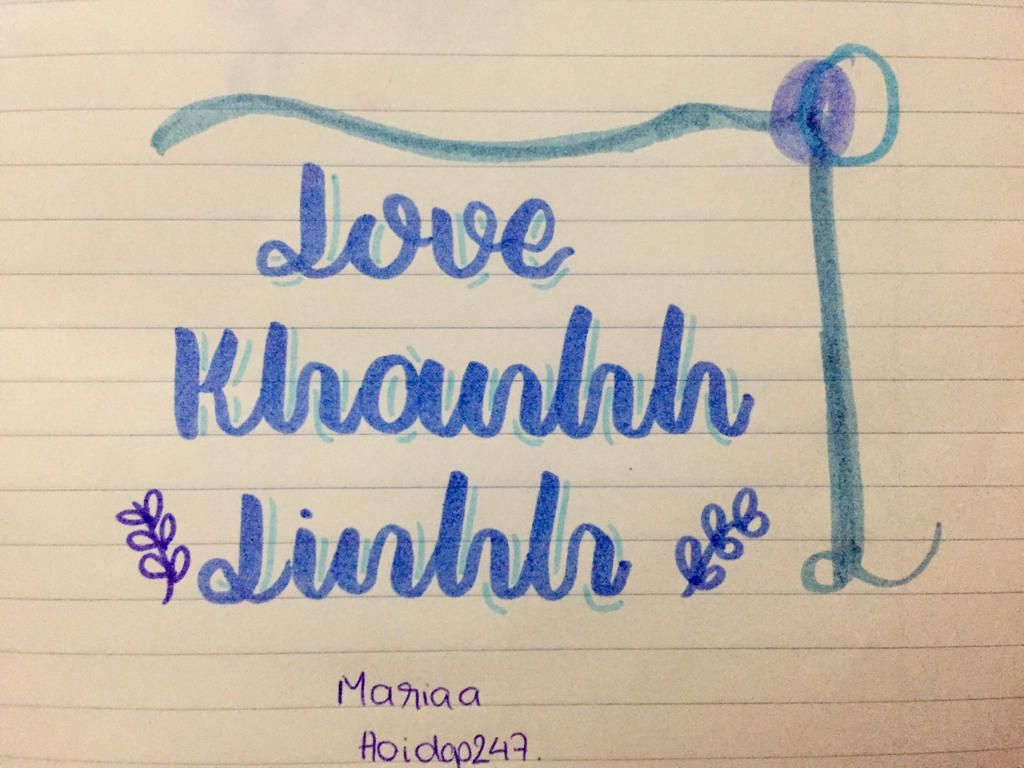 Love
Khanhh
Linhh
Mariaa
Hoidap247.